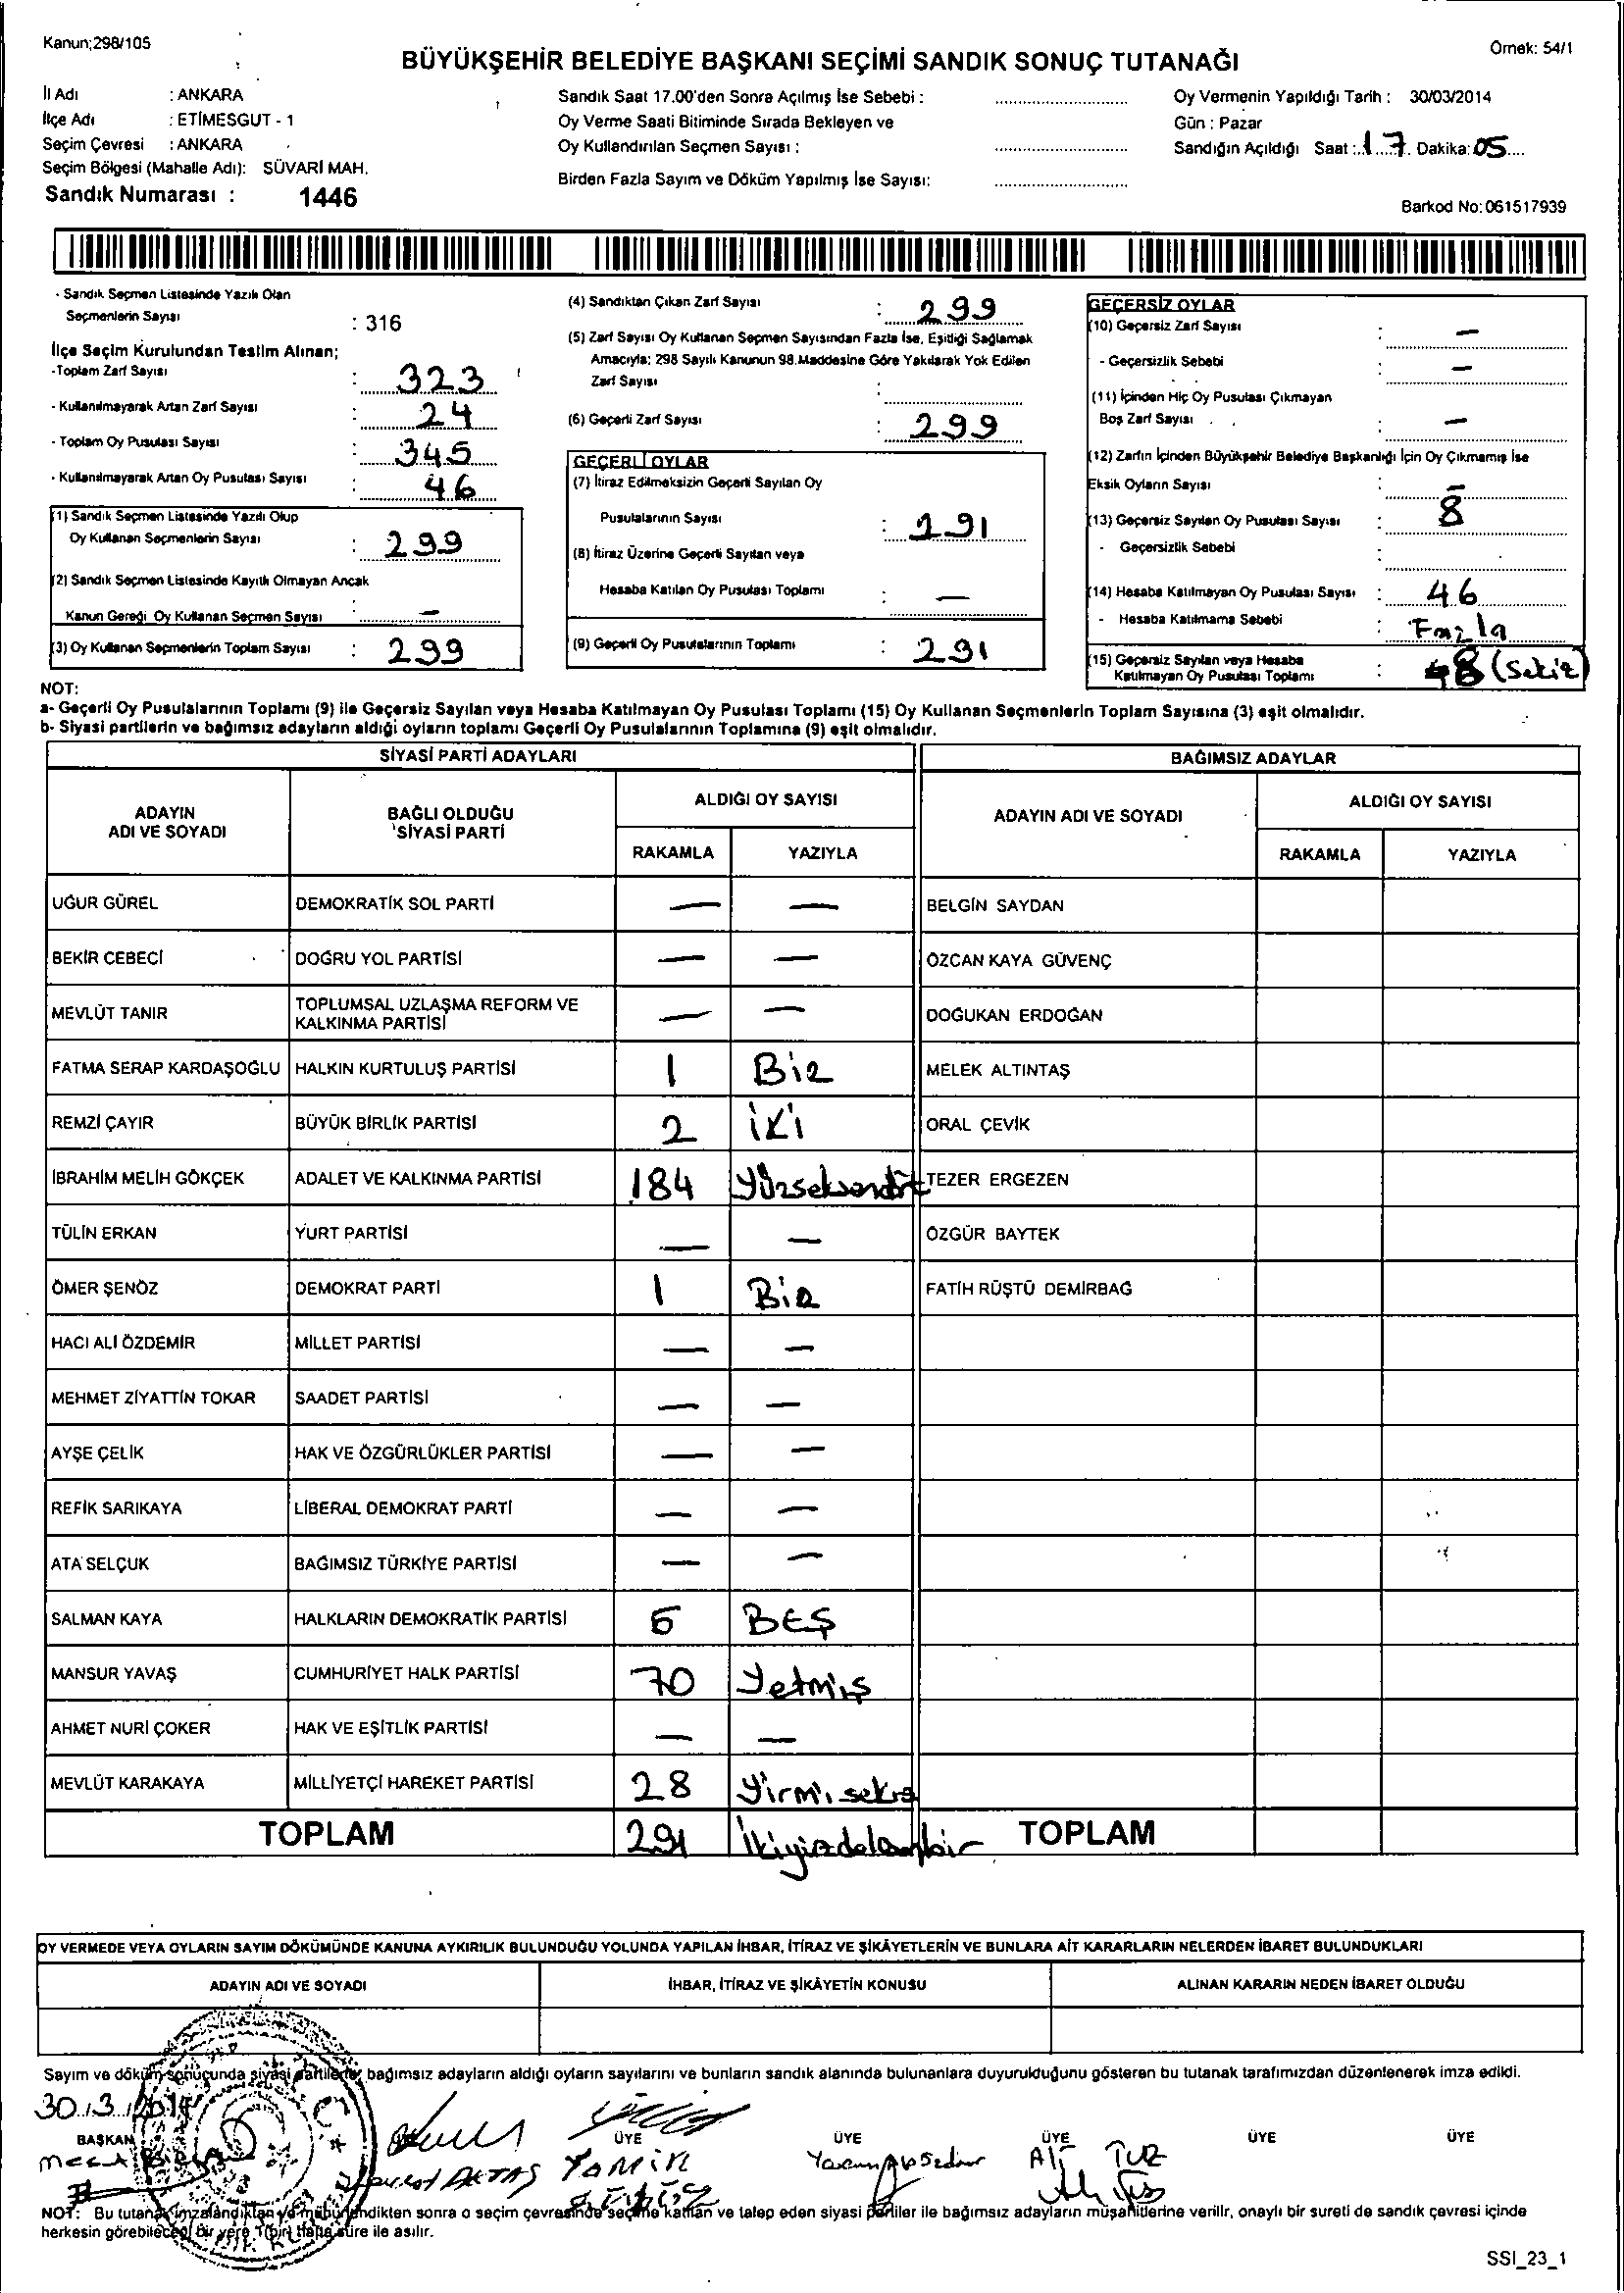 Kanun;298/105
Örnek: 54/1
BÜYÜKŞEHİR BELEDİYE BAŞKANI SEÇİMİ SANDIK SONUÇ TUTANAĞI
İl Adı : ANKARA
İlçe Adı : ETİMESGUT - 1
Seçim Çevresi : ANKARA
Seçim Bölgesi (Mahalle Adı): SÜVARİ MAH.
Sandık Numarası : 1446
Sandık Saat 17.00'den Sonra Açılmış İse Sebebi :
Oy Verme Saati Bitiminde Sırada Bekleyen ve
Oy Kullandırılan Seçmen Sayısı :
Birden Fazla Sayım ve Döküm Yapılmış İse Sayısı:
Oy Vermenin Yapıldığı Tarih : 30/03/2014
Gün : Pazar
Sandığın Açıldığı Saat : 17 Dakika: 05
Barkod No: 061517939
- Sandık Seçmen Listesinde Yazılı Olan
Seçmenlerin Sayısı : 316
İlçe Seçim Kurulundan Teslim Alınan;
-Toplam Zarf Sayısı : 323
- Kullanılmayarak Artan Zarf Sayısı : 24
- Toplam Oy Pusulası Sayısı : 345
- Kullanılmayarak Artan Oy Pusulası Sayısı : 46
(1) Sandık Seçmen Listesinde Yazılı Olup
Oy Kullanan Seçmenlerin Sayısı : 299
(2) Sandık Seçmen Listesinde Kayıtlı Olmayan Ancak
Kanun Gereği Oy Kullanan Seçmen Sayısı : —
(3) Oy Kullanan Seçmenlerin Toplam Sayısı : 299
(4) Sandıktan Çıkan Zarf Sayısı : 299
(5) Zarf Sayısı Oy Kullanan Seçmen Sayısından Fazla İse, Eşitliği Sağlamak
Amacıyla; 298 Sayılı Kanunun 98.Maddesine Göre Yakılarak Yok Edilen
Zarf Sayısı :
(6) Geçerli Zarf Sayısı : 299
GEÇERLİ OYLAR
(7) İtiraz Edilmeksizin Geçerli Sayılan Oy
Pusulalarının Sayısı : 291
(8) İtiraz Üzerine Geçerli Sayılan veya
Hesaba Katılan Oy Pusulası Toplamı : —
(9) Geçerli Oy Pusulalarının Toplamı : 291
GEÇERSİZ OYLAR
(10) Geçersiz Zarf Sayısı : —
- Geçersizlik Sebebi : —
(11) İçinden Hiç Oy Pusulası Çıkmayan
Boş Zarf Sayısı : —
(12) Zarfın İçinden Büyükşehir Belediye Başkanlığı İçin Oy Çıkmamış İse
Eksik Oyların Sayısı : —
(13) Geçersiz Sayılan Oy Pusulası Sayısı : 8
- Geçersizlik Sebebi :
(14) Hesaba Katılmayan Oy Pusulası Sayısı : 46
- Hesaba Katılmama Sebebi : Fazla
(15) Geçersiz Sayılan veya Hesaba
Katılmayan Oy Pusulası Toplamı : 8 (Sekiz)
NOT:
a- Geçerli Oy Pusulalarının Toplamı (9) ile Geçersiz Sayılan veya Hesaba Katılmayan Oy Pusulası Toplamı (15) Oy Kullanan Seçmenlerin Toplam Sayısına (3) eşit olmalıdır.
b- Siyasi partilerin ve bağımsız adayların aldığı oyların toplamı Geçerli Oy Pusulalarının Toplamına (9) eşit olmalıdır.
SİYASİ PARTİ ADAYLARI BAĞIMSIZ ADAYLAR
ADAYIN ADI VE SOYADI BAĞLI OLDUĞU SİYASİ PARTİ ALDIĞI OY SAYISI ADAYIN ADI VE SOYADI ALDIĞI OY SAYISI
RAKAMLA YAZIYLA RAKAMLA YAZIYLA
UĞUR GÜREL DEMOKRATİK SOL PARTİ — — BELGİN SAYDAN
BEKİR CEBECİ DOĞRU YOL PARTİSİ — — ÖZCAN KAYA GÜVENÇ
MEVLÜT TANIR TOPLUMSAL UZLAŞMA REFORM VE KALKINMA PARTİSİ — — DOĞUKAN ERDOĞAN
FATMA SERAP KARDAŞOĞLU HALKIN KURTULUŞ PARTİSİ 1 Bir MELEK ALTINTAŞ
REMZİ ÇAYIR BÜYÜK BİRLİK PARTİSİ 2 İKİ ORAL ÇEVİK
İBRAHİM MELİH GÖKÇEK ADALET VE KALKINMA PARTİSİ 184 Yüzseksendört TEZER ERGEZEN
TÜLİN ERKAN YURT PARTİSİ — — ÖZGÜR BAYTEK
ÖMER ŞENÖZ DEMOKRAT PARTİ 1 Bir FATİH RÜŞTÜ DEMİRBAĞ
HACI ALİ ÖZDEMİR MİLLET PARTİSİ — —
MEHMET ZİYATTİN TOKAR SAADET PARTİSİ — —
AYŞE ÇELİK HAK VE ÖZGÜRLÜKLER PARTİSİ — —
REFİK SARIKAYA LİBERAL DEMOKRAT PARTİ — —
ATA SELÇUK BAĞIMSIZ TÜRKİYE PARTİSİ — —
SALMAN KAYA HALKLARIN DEMOKRATİK PARTİSİ 5 BEŞ
MANSUR YAVAŞ CUMHURİYET HALK PARTİSİ 70 Yetmiş
AHMET NURİ ÇOKER HAK VE EŞİTLİK PARTİSİ — —
MEVLÜT KARAKAYA MİLLİYETÇİ HAREKET PARTİSİ 28 Yirmi sekiz
TOPLAM 291 İkiyüzdoksanbir TOPLAM
OY VERMEDE VEYA OYLARIN SAYIM DÖKÜMÜNDE KANUNA AYKIRILIK BULUNDUĞU YOLUNDA YAPILAN İHBAR, İTİRAZ VE ŞİKÂYETLERİN VE BUNLARA AİT KARARLARIN NELERDEN İBARET BULUNDUKLARI
ADAYIN ADI VE SOYADI İHBAR, İTİRAZ VE ŞİKÂYETİN KONUSU ALINAN KARARIN NEDEN İBARET OLDUĞU
Sayım ve döküm sonucunda siyasi partilerle, bağımsız adayların aldığı oyların sayılarını ve bunların sandık alanında bulunanlara duyurulduğunu gösteren bu tutanak tarafımızdan düzenlenerek imza edildi.
30.3.2014
BAŞKAN ÜYE ÜYE ÜYE ÜYE ÜYE
AKTAŞ YAMİN Ali TUZ
NOT: Bu tutanak imzalandıktan ve mühürlendikten sonra o seçim çevresinde seçime katılan ve talep eden siyasi partiler ile bağımsız adayların müşahitlerine verilir, onaylı bir sureti de sandık çevresi içinde
herkesin görebileceği bir yere 1 (bir) hafta süre ile asılır.
SSI_23_1